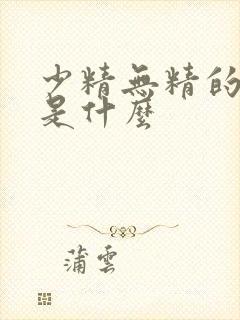 少精無精的
是什麼
蒲雲